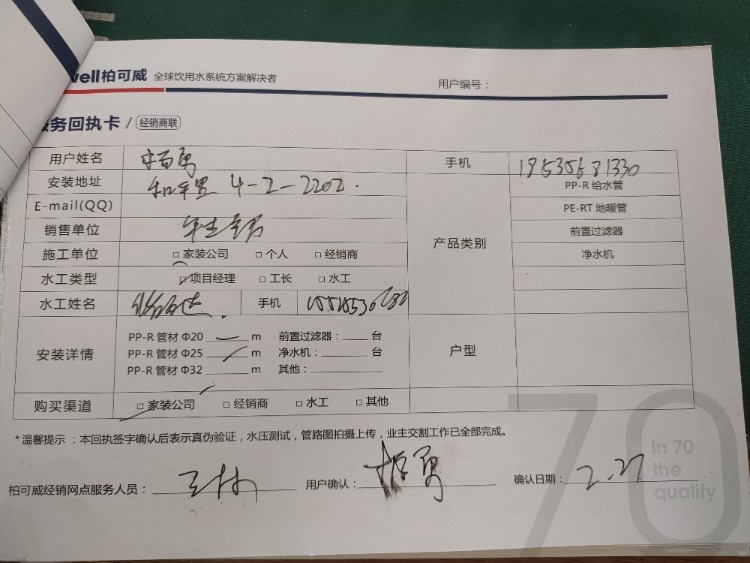 vell柏可威 全球饮用水系统方案解决者 用户编号：
服务回执卡 / 经销商联
用户姓名 手机
安装地址 4-2-2202. PP-R 给水管
E-mail(QQ) PE-RT 地暖管
销售单位 产品类别 前置过滤器
施工单位 □ 家装公司 □ 个人 □ 经销商 净水机
水工类型 项目经理 □ 工长 □ 水工
水工姓名 手机
PP-R 管材 Φ20 m 前置过滤器： 台
安装详情 PP-R 管材 Φ25 m 净水机： 台 户型
PP-R 管材 Φ32 m 其他：
购买渠道 □ 家装公司 □ 经销商 □ 水工 □ 其他
*温馨提示：本回执签字确认后表示真伪验证，水压测试，管路图拍摄上传，业主交割工作已全部完成。
70
In 70
the
quality
柏可威经销网点服务人员： 用户确认： 确认日期：2.27